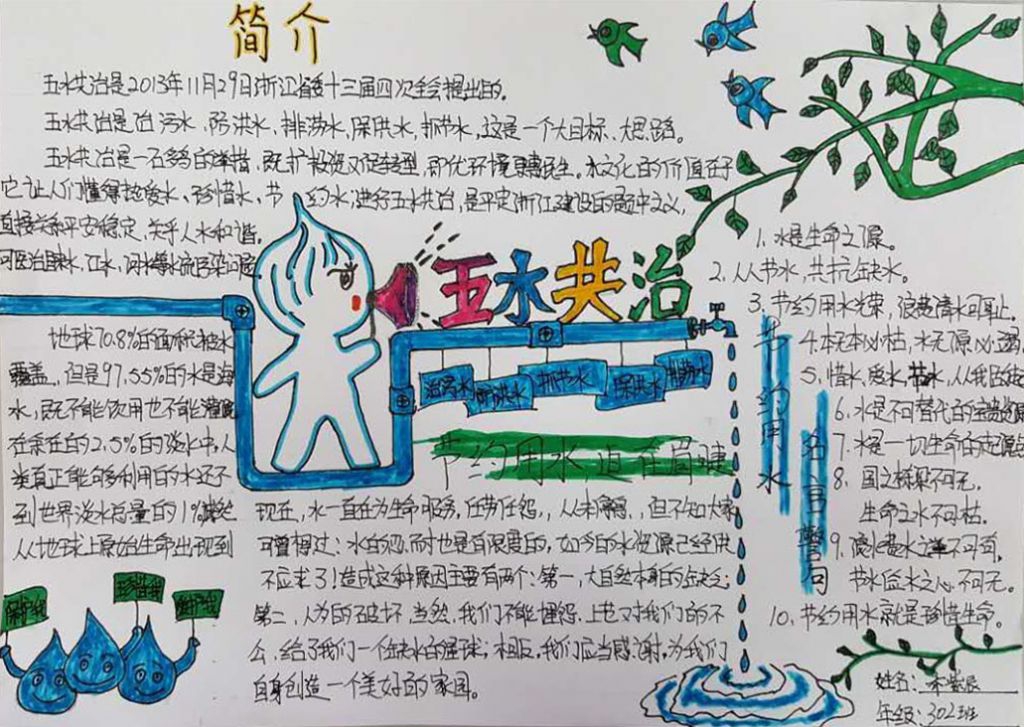 简介
五水共治是2013年11月29日浙江省委十三届四次全会提出的。
五水共治是治污水、防洪水、排涝水、保供水、抓节水,这是一个大目标、大思路。
五水共治是一石多鸟的举措,既扩投资又促转型,即优环境更惠民生。水文化的价值在于
它让人们懂得热爱水、珍惜水、节约水,进行五水共治,是平定浙江建设的题中之义,
直接关系平安稳定,关乎人水和谐。
五水共治
地球70.8%的面积被水
覆盖,但是97.55%的水是海
水,既不能饮用也不能灌溉
在余在的2.5%的淡水中,人
类真正能够利用的水还不
到世界淡水总量的1%
从地球上原始生命出现到
治污水
防洪水
抓节水
保供水
排涝水
节约用水
现在,水一直在为生命服务,任劳任怨,从未,但不知大家
可曾想过:水的恩而时也是有限度的,如今的水资源已经供
不应求了!造成这种原因主要有两个:第一,大自然本身的缺乏;
第二,人为的破坏,当然,我们不能埋怨,上苍对我们的不
公,给了我们一个缺水的星球;相反,我们应当感谢,为我们
自身创造一个美好的家园。
节约用水
名言警句
1、水是生命之源。
2、人人节水,共抗缺水。
3、节约用水光荣,浪费清水可耻。
4.木无本必枯,水无源必竭
5、惜水,爱水,节水,从我做起
6、水是不可替代的宝贵资源
7、水是一切生命的起源
8、国之栋梁不可无。
生命之水不可枯。
9、费水之不可有,
节水益水之心不可无。
10、节约用水就是珍惜生命。
保护我
珍惜我
姓名:
年级:302班